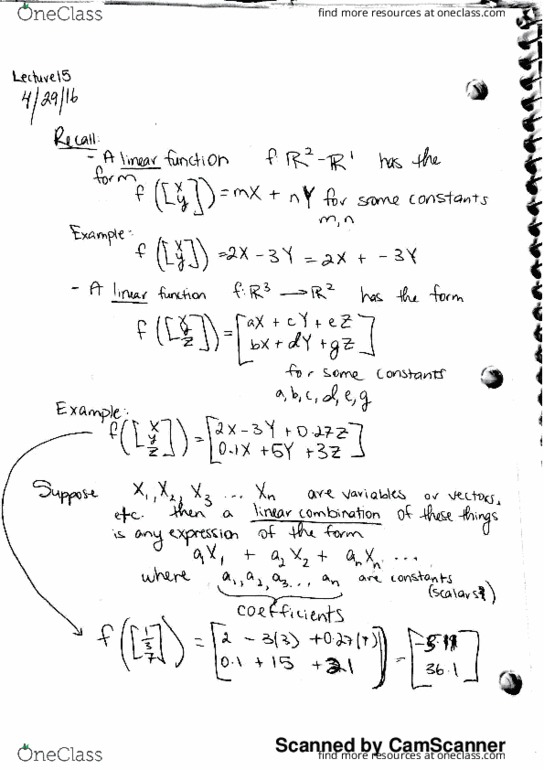 OneClass
find more resources at oneclass.com
Lecture 15
4/29/16
Recall:
- A linear function f: ℝ² - ℝ¹ has the
form
f([X Y]) = mX + nY for some constants
m,n
Example:
f([X Y]) = 2X - 3Y = 2X + -3Y
- A linear function f: ℝ³ → ℝ² has the form
f([X Y Z]) = [aX + cY + eZ
bX + dY + gZ]
for some constants
a,b,c,d,e,g
Example:
f([X Y Z]) = [2X - 3Y + 0.27Z
0.1X + 5Y + 3Z]
Suppose X₁, X₂, X₃ ... Xn are variables or vectors,
etc. then a linear combination of these things
is any expression of the form
a₁X₁ + a₂X₂ + anXn ...
where a₁, a₂, a₃..., an are constants
(scalars)
coefficients
f([1 3 7]) = [2 - 3(3) + 0.27(7)
0.1 + 15 + 21] = [-5.11
36.1]
Scanned by CamScanner
OneClass
find more resources at oneclass.com